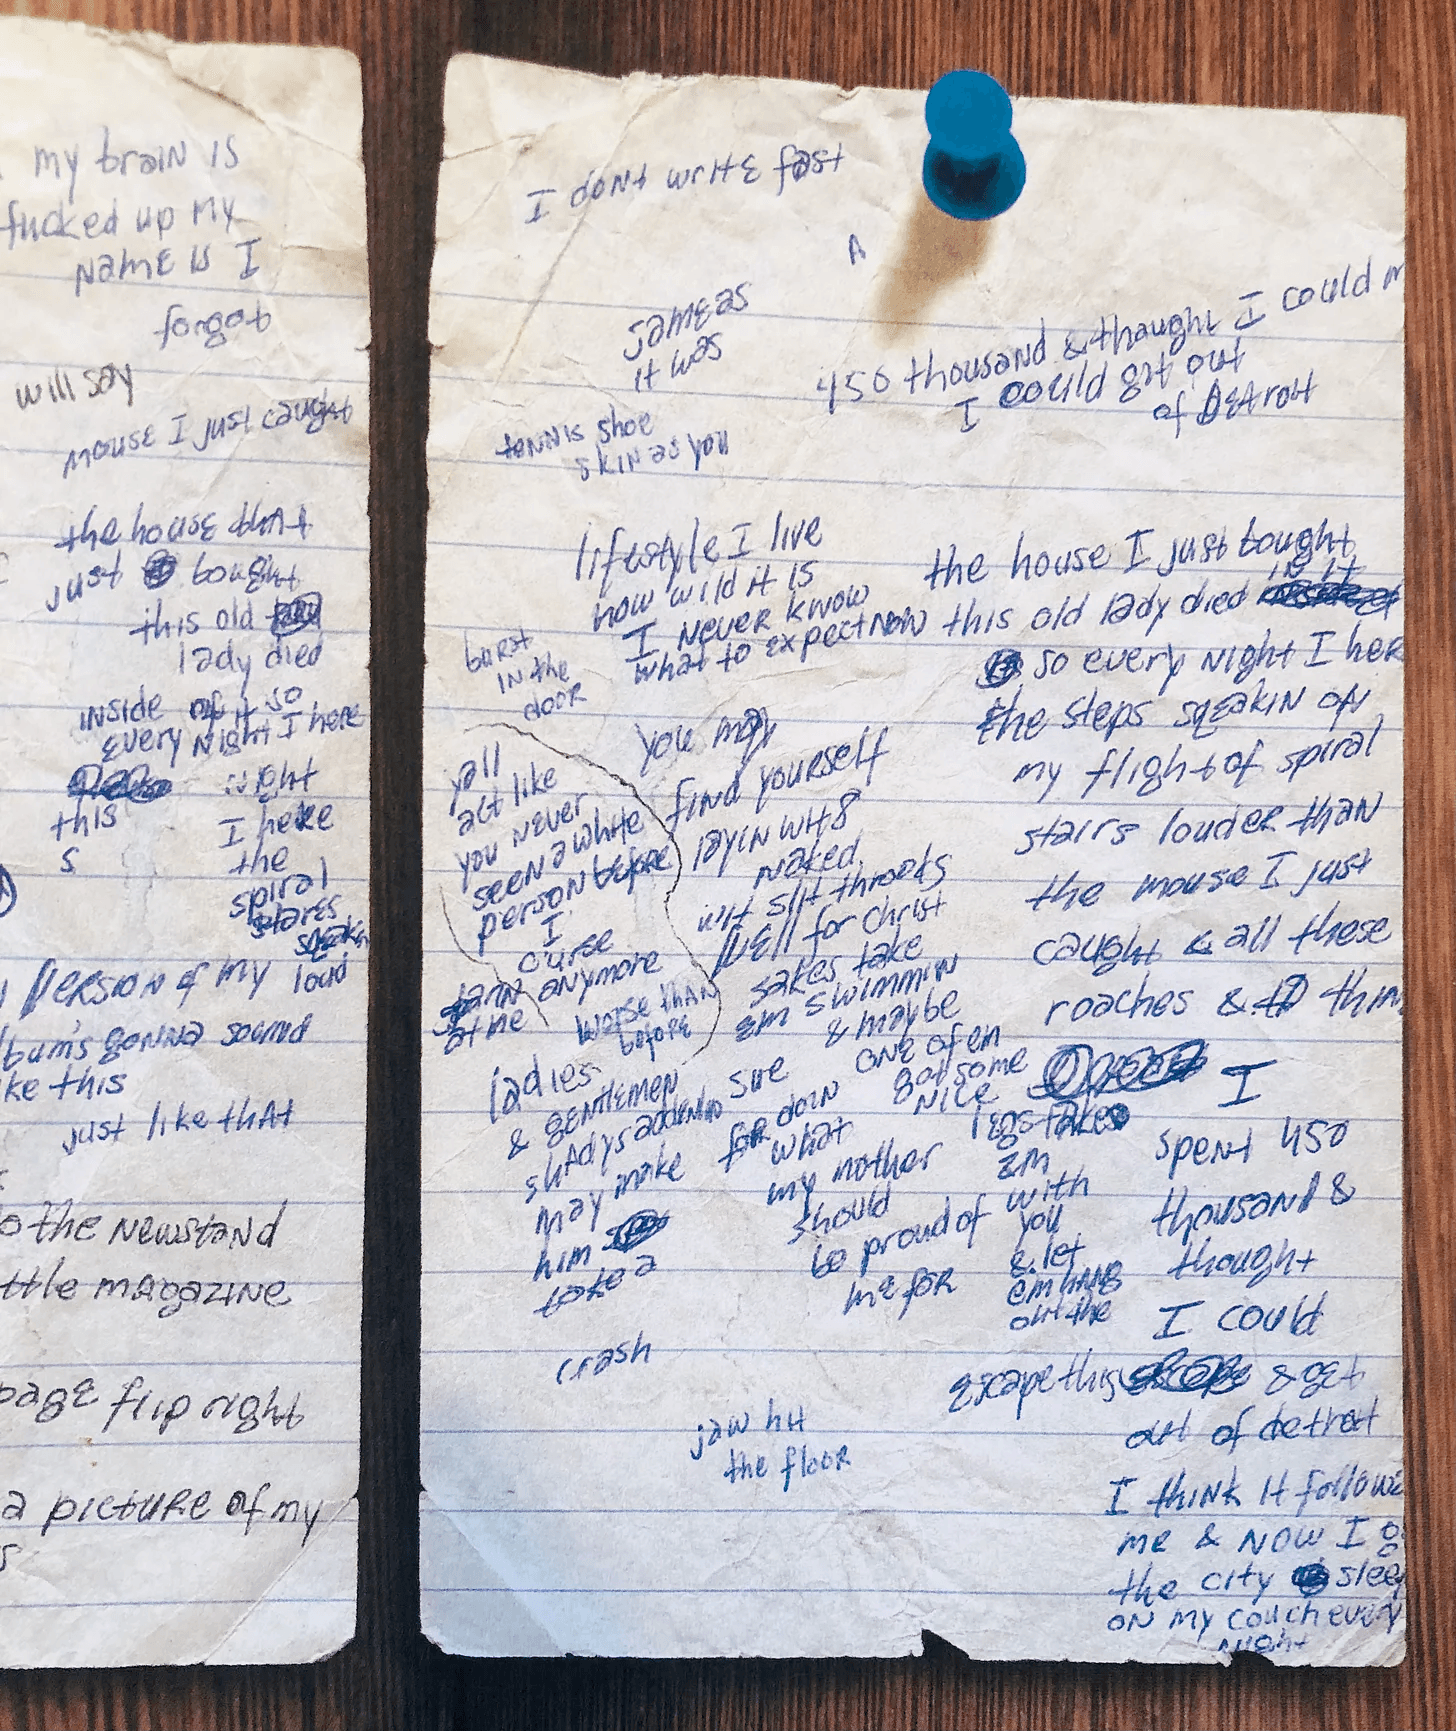 my brain is
fucked up my
name is I
forgot
will say
mouse I just caught
the house that
just bought
this old
lady died
inside of it so
every night I here
night
this
I here
s
the
spiral
stares
squeakin
loud
person of my
bum's gonna sound
ke this
just like that
o the newstand
ttle magazine
page flip right
a picture of my
s
I dont write fast
A
same as
it was
450 thousand & thaught I could
I could get out
of Detroit
tennis shoe
skin as you
lifestyle I live
how wild it is
I never know
what to expect now
burst
in the
door
yall
act like
you never
seen a white
person before
I
curse
anymore
at me
worse than
before
ladies
& gentlemen
shadys addendo
may make
him
take a
crash
you may
find yourself
layin wit 8
naked
wit slit throats
well for christ
sakes take
em swimmin
& maybe
one of em
got some
nice
legs take
em
with
you
& let
em hang
out the
sue
for doin
what
my mother
should
be proud of
me for
jaw hit
the floor
the house I just bought
this old lady died in it
so every night I here
the steps sqeakin on
my flight of spiral
stairs louder than
the mouse I just
caught & all these
roaches &
I
spent 450
thousand &
thought
I could
escape this & get
out of detroit
I think it followe
me & now I g
the city sleep
on my couch every
night